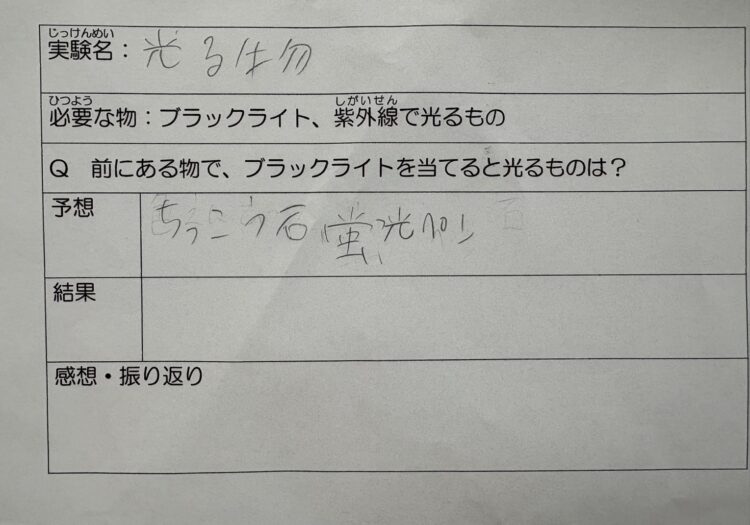 じっけんめい
実験名：光る生物
ひつよう しがいせん
必要な物：ブラックライト、紫外線で光るもの
Q 前にある物で、ブラックライトを当てると光るものは？
予想 ちっこう石 蛍光ペン
結果
感想・振り返り